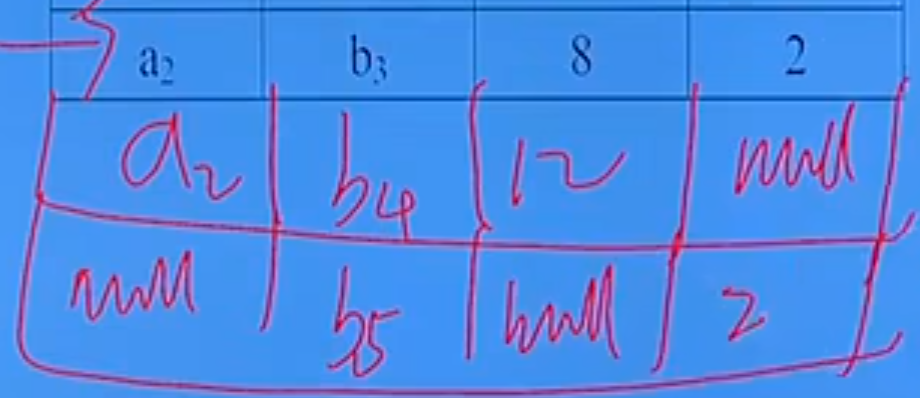 a₂ b₃ 8 2
a₂ b₄ 12 null
null b5 null 2